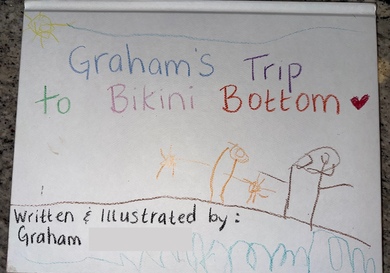 Graham's Trip
to Bikini Bottom
Written & Illustrated by:
Graham